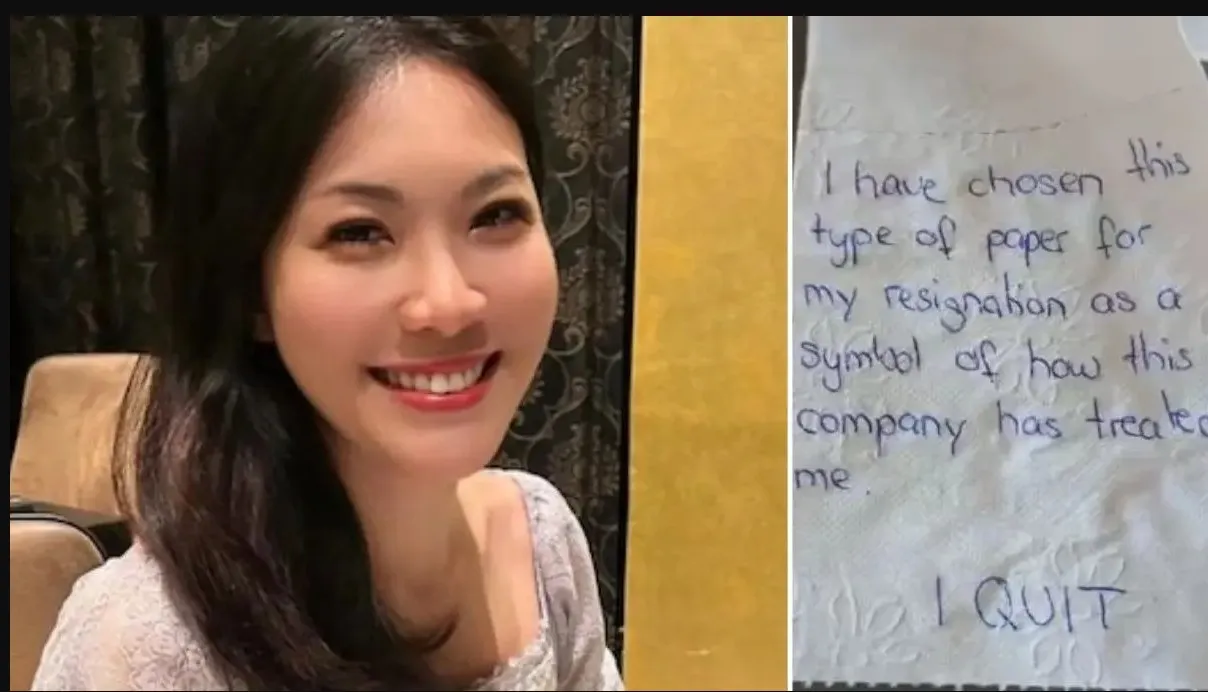 I have chosen this
type of paper for
my resignation as a
symbol of how this
company has treated
me.
I QUIT